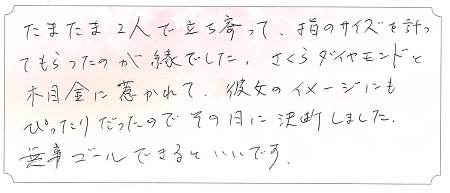 たまたま2人で立ち寄って、指のサイズを計っ
てもらったのが縁でした。さくらダイヤモンドと
木目金に惹かれて、彼女のイメージにも
ぴったりだったのでその日に決断しました。
無事ゴールできるといいです。